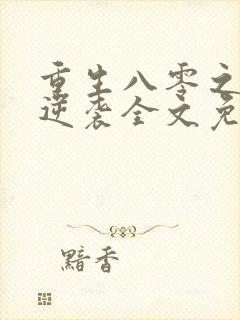 重生八零之
逆袭全文免
黯香